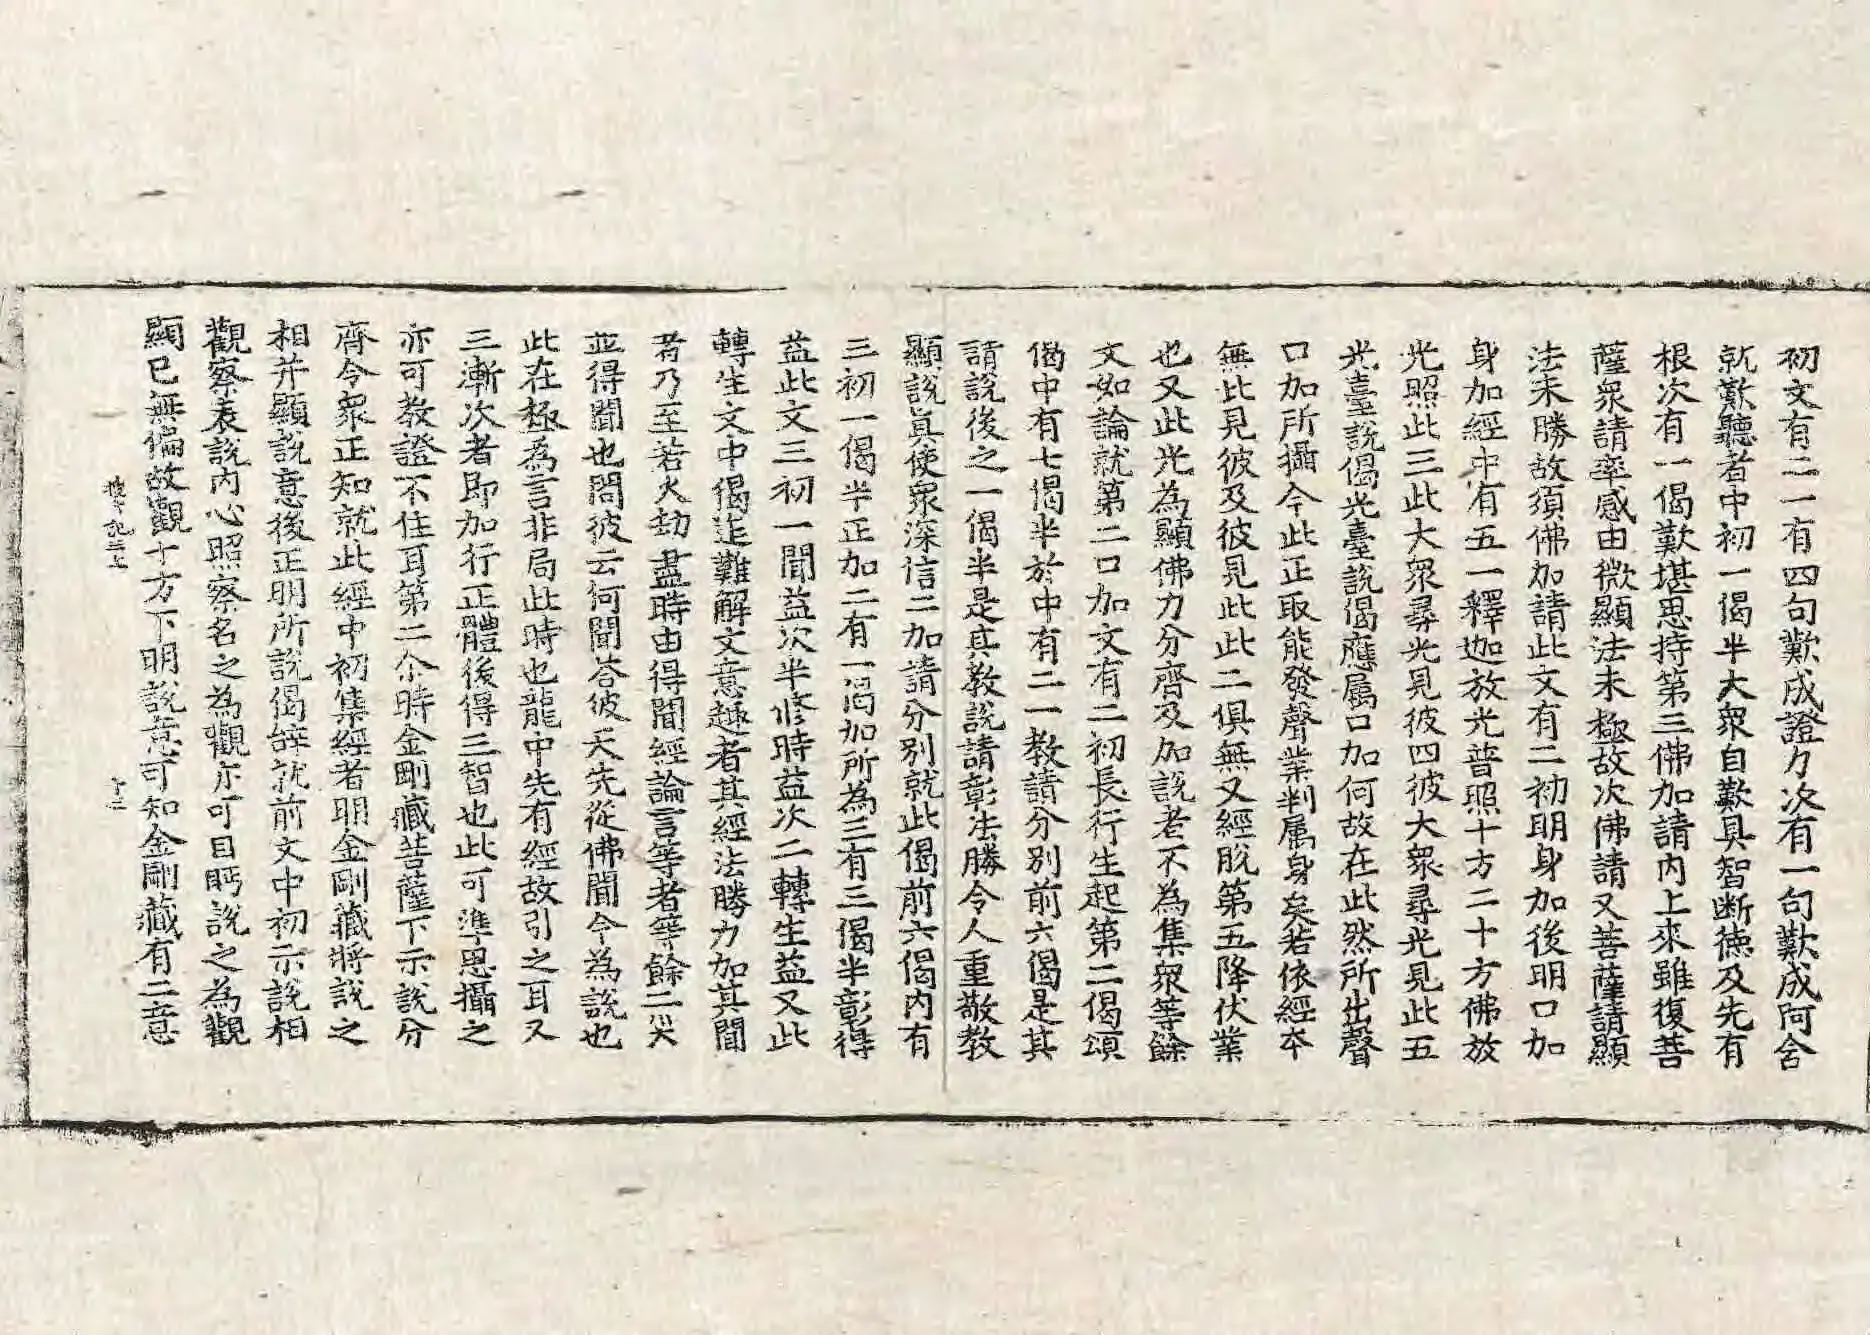 初文有二一有四句歎成證力次有一句歎成阿含
就歎聽者中初一偈半大衆自歎具智断德及先有
根次有一偈歎堪思持第三佛加請内上來雖復菩
薩衆請率感由微顯法未極故次佛請又菩薩請顯
法未勝故須佛加請此文有二初明身加後明口加
身加經中有五一釋迦放光普照十方二十方佛放
光照此三此大衆尋光見彼四彼大衆尋光見此五
光臺說偈光臺說偈應属口加何故在此然所出聲
口加所攝今此正取能發聲業判属身矣若依經本
無此見彼及彼見此此二俱無又經脫第五降伏業
也又此光為顯佛力分齊及加說者不為集衆等餘
文如論就第二口加文有二初長行生起第二偈頌
偈中有七偈半於中有二一教請分別前六偈是其
請說後之一偈半是其教說請彰法勝令人重敬教
顯說真使衆深信二加請分別就此偈前六偈内有
三初一偈半正加二有一偈加所為三有三偈半彰得
益此文三初一聞益次半修時益次二轉生益又此
轉生文中偈迮難解文意趣者其經法勝力加其聞
者乃至若火劫盡時由得聞經論言等者等餘二災
並得聞也問彼云何聞答彼天先從佛聞今為說也
此在極為言非局此時也龍中先有經故引之耳又
三漸次者即加行正體後得三智也此可準思攝之
亦可教證不住耳第二尒時金剛蔵菩薩下示說分
齊令衆正知就此經中初集經者明金剛蔵將說之
相并顯說意後正明所說偈辝就前文中初示說相
觀察表說内心照察名之為觀亦可目眄說之為觀
顯已無偏故觀十方下明說意可知金剛蔵有二意
十三